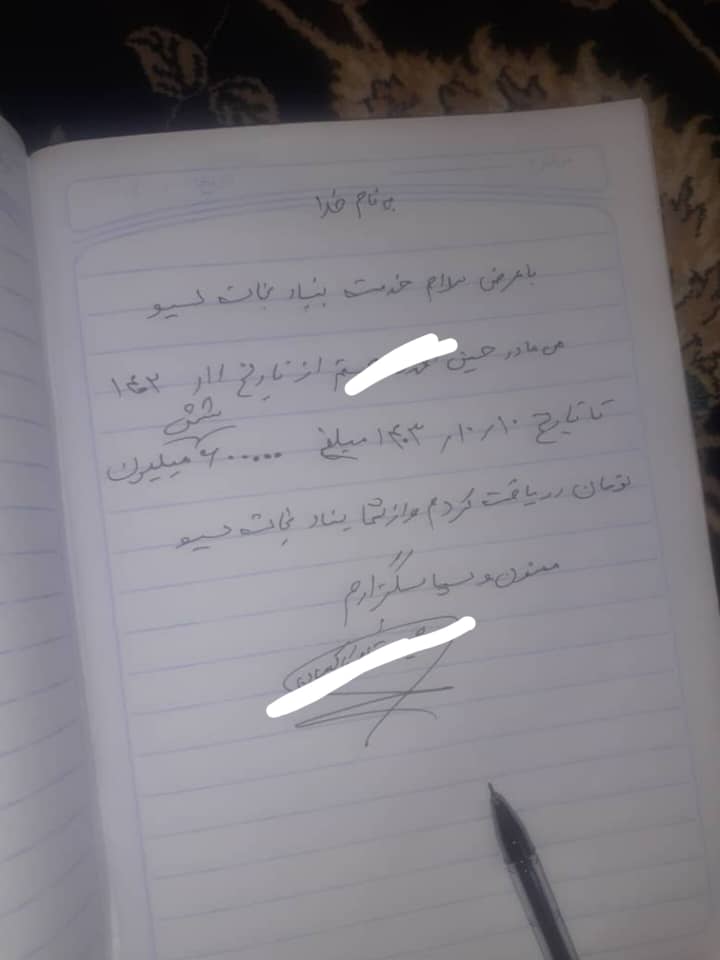 به نام خدا
با عرض سلام خدمت بنیاد نجات سیو
من مادر حسین هستم از تاریخ ۱/۱/ ۱۴۰۳
تا تاریخ ۱۰/۱۰/ ۱۴۰۳ مبلغ ۶۰۰۰۰۰۰ شش میلیون
تومان دریافت کردم و از شما بنیاد نجات سیو
ممنون و سپاسگزارم